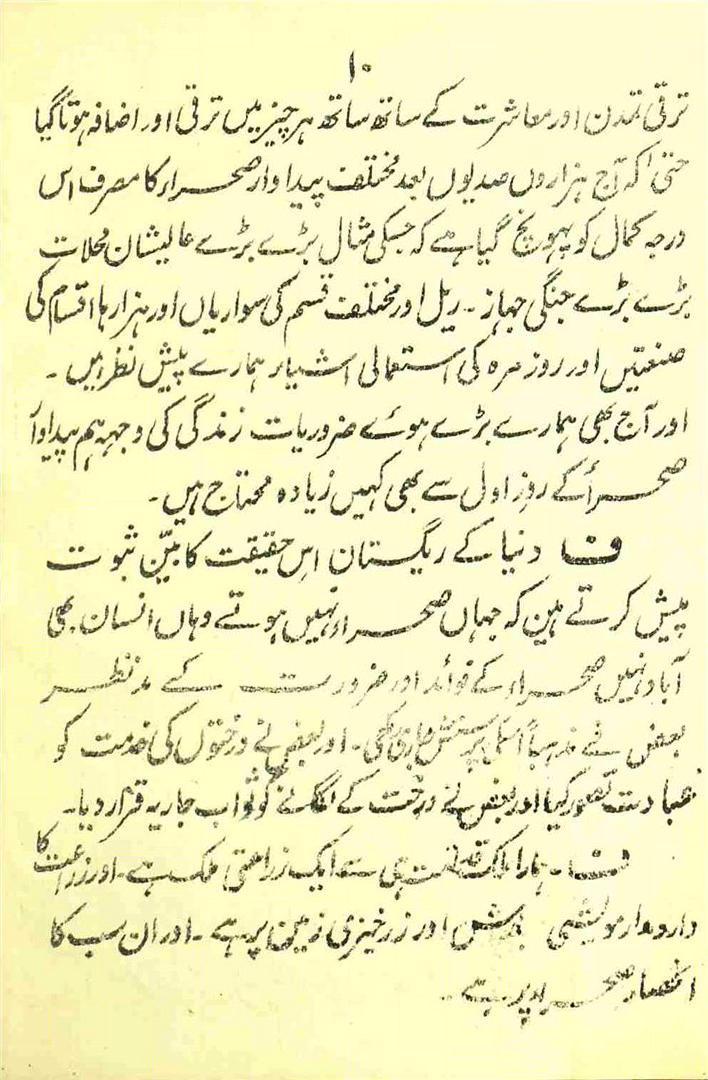 ۱۰
ترقی تمدن اور معاشرت کے ساتھ ساتھ ہر چیز میں ترقی اور اضافہ ہوتا گیا
حتٰی اکہ آج ہزاروں صدیوں بعد مختلف پیداوار صحراء کا مصرف اس
درجہ کمال کو پہونچ گیا ہے کہ جسکی مثال بڑے بڑے عالیشان محلات
بڑے بڑے جنگی جہاز۔ ریل اور مختلف قسم کی سواریاں اور ہزارہا اقسام کی
صنعتیں اور روزمرہ کی استعمالی اشیاء ہمارے پیش نظر ہیں۔
اور آج بھی ہمارے بڑے ہوئے ضروریات زندگی کی وجہہ ہم پیداوار
صحرأ کے روز اول سے بھی کہیں زیادہ محتاج ہیں۔
ف دنیا کے ریگستان اس حقیقت کا بیّن ثبوت
پیش کرتے ہین کہ جہاں صحراء نہیں ہوتے وہاں انسان بھی
آباد نہیں صحراء کے فوائد اور ضرورت کے مدنظر
بعض نے مذہباً اسکی پرستش جاری رکھی۔ اور بعض نے درختوں کی خدمت کو
عبادت تصور کیا اور بعض نے درخت کے اگانے کو ثواب جاریہ قرار دیا۔
ف۔ ہمارا ملک ہی سے ایک زراعتی ملک ہے۔ اور زراعت کا
دارومدار مویشی بارش اور زرخیزی زمین پر ہے۔ اور ان سب کا
انحصار صحراء پر ہے۔